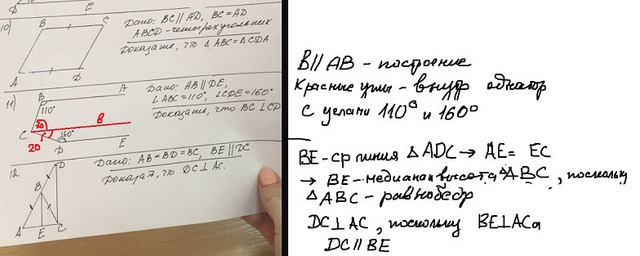 E
10)
B
C
A
D
Дано: BC∥AD, BC=AD
ABCD - четырехугольник
Доказать, что △ABC=△CDA
11)
B
A
110°
70
в
C
20
160°
D
E
Дано: AB∥DE,
∠ABC=110°, ∠CDE=160°
Доказать, что BC⊥CD
12
D
B
A
E
C
Дано: AB=BD=BC, BE∥DC
Доказат, что DC⊥AC.
В∥АВ - построение
Красные углы - внутр одностор
с углами 110° и 160°
ВЕ-ср линия △ADC → AE= EC
→ BE-медиана и высота △ABC, поскольку
△ABC - равнобедр
DC⊥AC, поскольку BE⊥AC а
DC∥BE